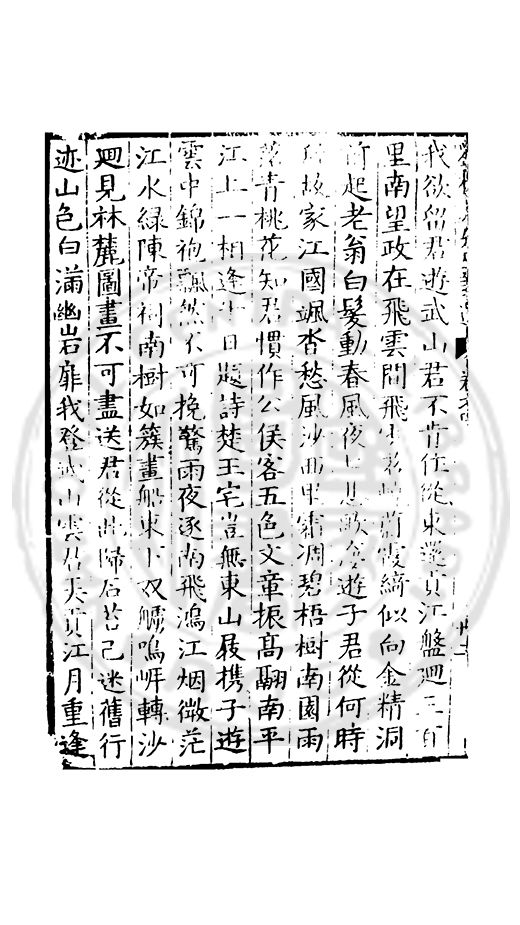 我欲留君遊武山君不肯住從東遊貢江盤廻三百
里南望政在飛雲間飛 霞綺似向金精洞
前起老翁白髮動春風夜 遊子君從何時
故家江國颯杳愁風沙西 霜凋碧梧樹南園雨
青桃花知君慣作公侯客五色文章振高翮南平
江上一相逢 日題詩楚王宅豈無東山屐携子遊
雲中錦袍飄然不可挽驚雨夜逐南飛鴻江烟微茫
江水綠陳帝祠南樹如簇畫船東下双艣鳴岍轉沙
廻見林麓圖畫不可盡送君從此歸石苔已迷舊行
迹山色白滿幽岩扉我登武山雲君 貢江月重逢